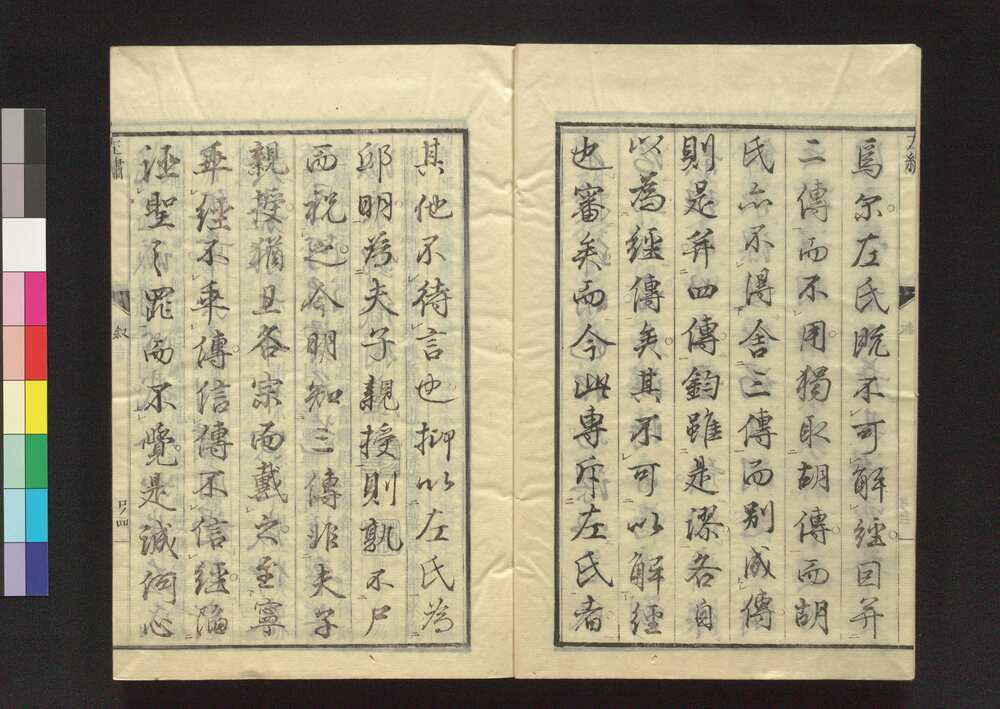 焉尓左氏既不可解經因并
二傳而不用獨取胡傳而胡
氏亦不得舍三傳而別成傳
則是并四傳鈞雖是謬各自
以為經傳矣其不可以解經
也審矣而今此專斥左氏者
其他不待言也抑以左氏為
邱明為夫子親授則孰不尸
而祝之今明知三傳非夫子
親授猶且各宗而戴之至寧
乖經不乖傳信傳不信經陷
誣聖之罪而不覺是誠何心
叙